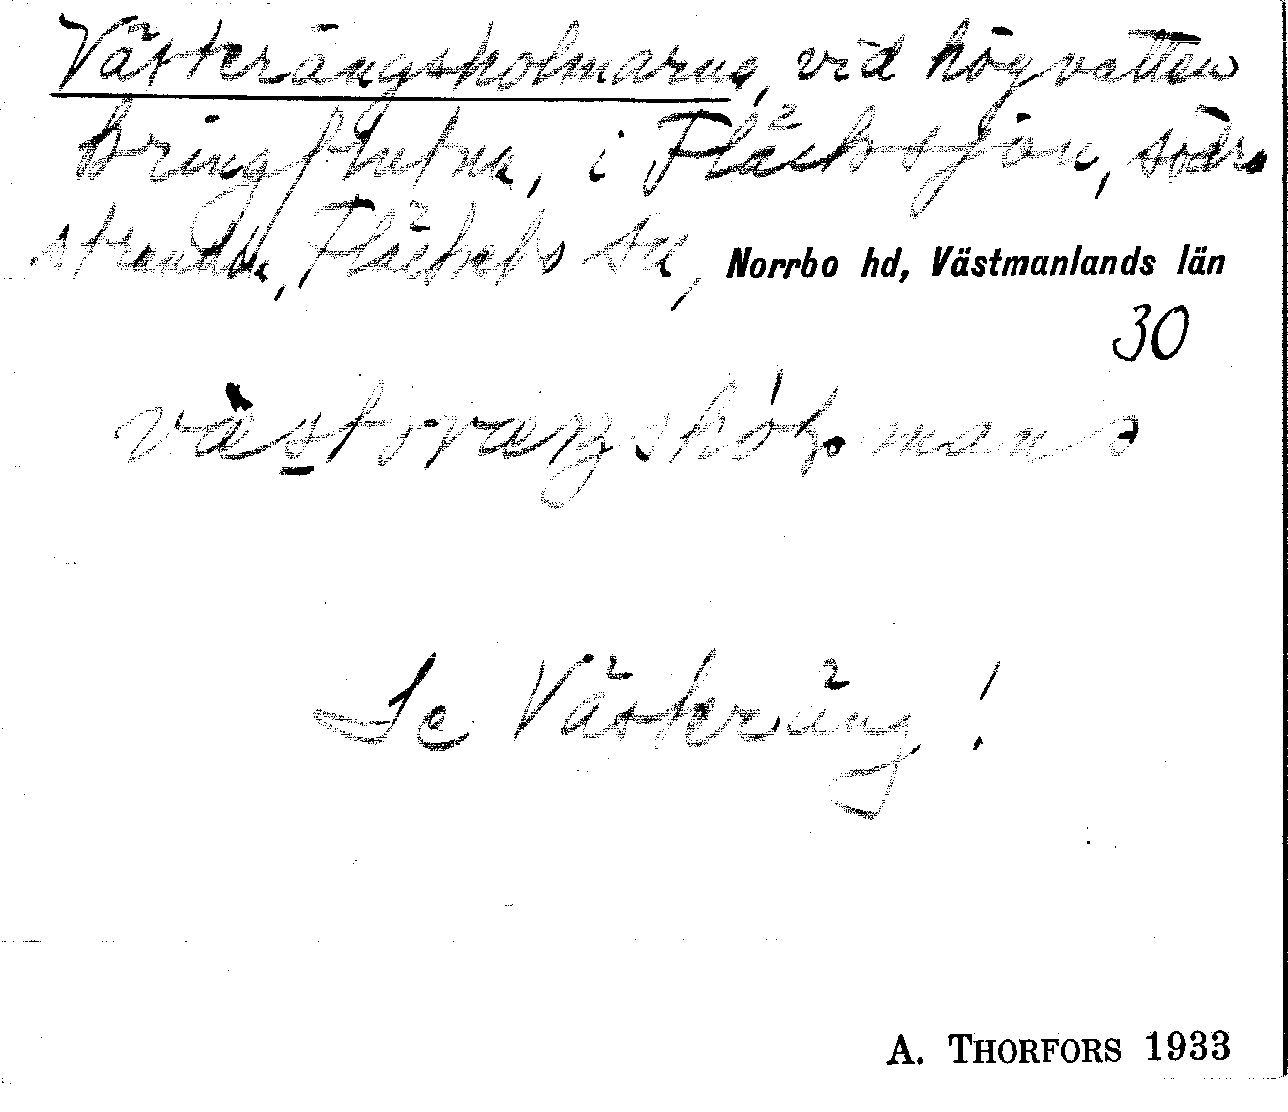 Västerängsholmarna, vid högvatten
kringflutna, i Fläcksjön, södra
stranden, Fläckebo sn, Norrbo hd, Västmanlands län
30
Se Västeräng!
A. THORFORS 1933